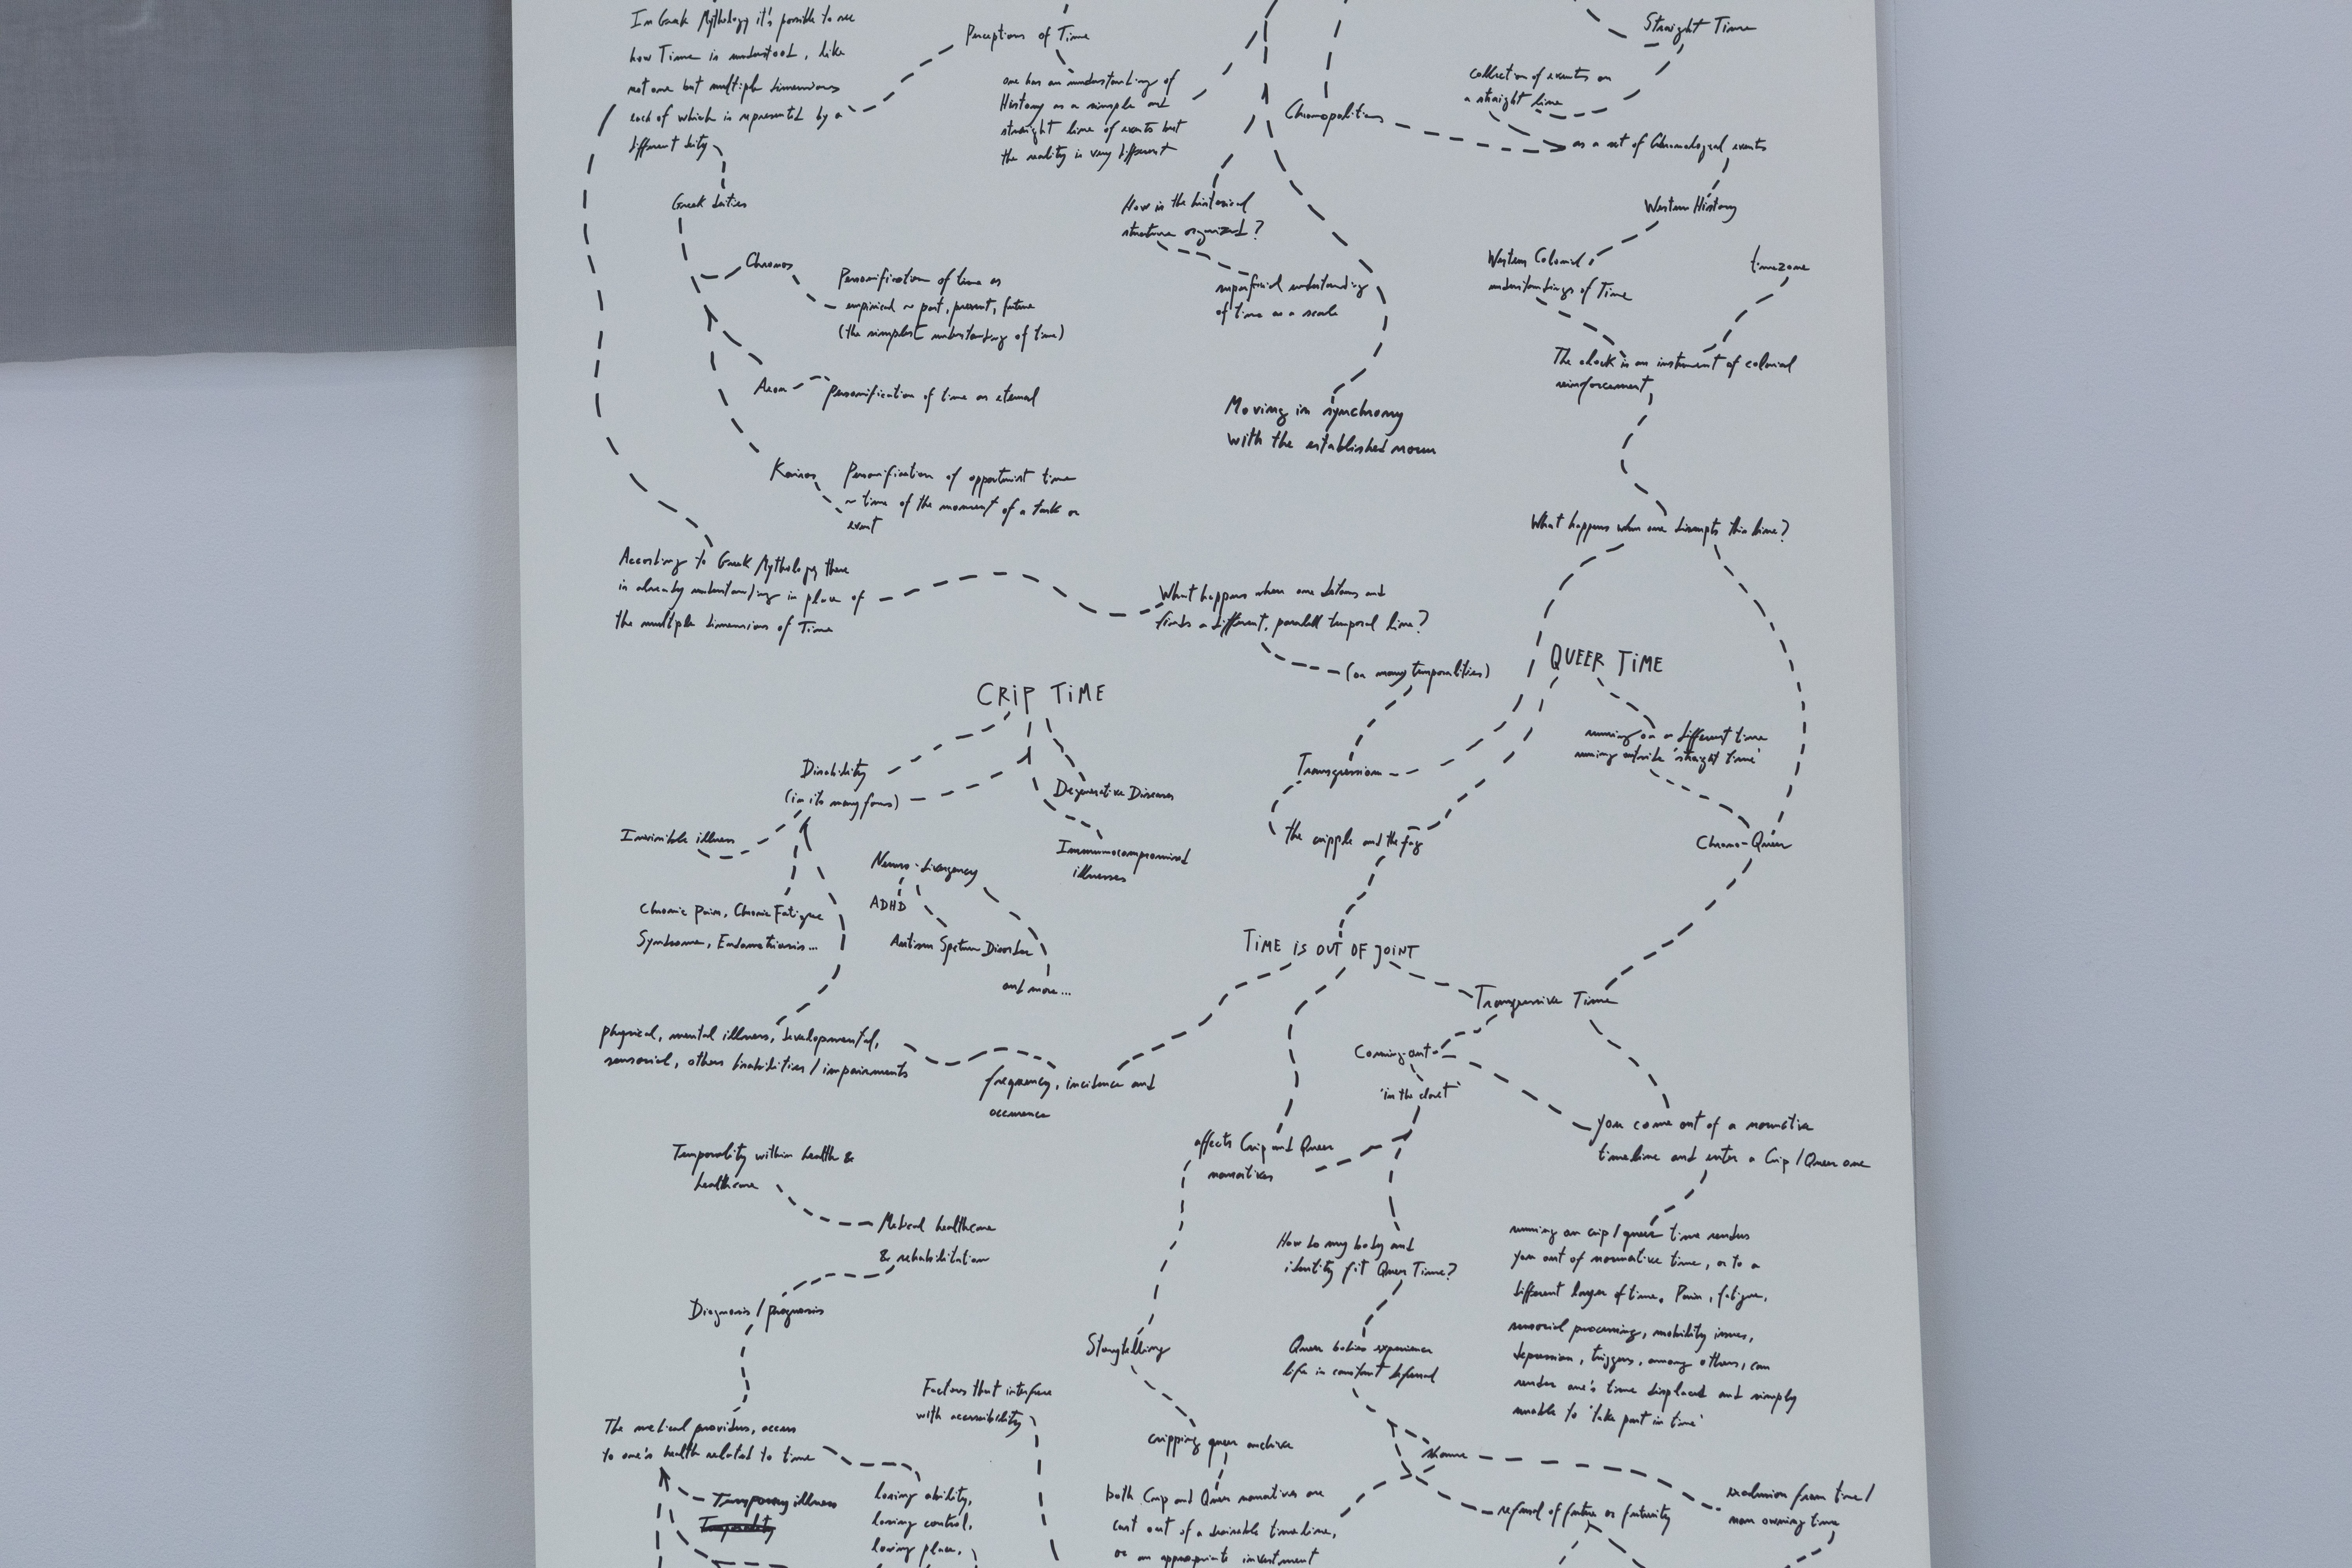 In Greek Mythology it's possible to see
how Time is understood, like
not one but multiple dimensions
each of which is represented by a
different deity
Perceptions of Time
one has an understanding of
History as a simple and
straight line of events but
the reality is very different
Straight Time
collection of events on
a straight line
Chronopolitics
as a set of Chronological events
Greek deities
How is the historical
structure organized?
Western History
Western Colonial
understandings of Time
timezone
Chronos
Personification of time as
empirical ~ past, present, future
(the simplest understanding of time)
superficial understanding
of time as a scale
The clock is an instrument of colonial
reinforcement
Aeon
Personification of time as eternal
Moving in synchrony
with the established norm
Kairos
Personification of opportunist time
~ time of the moment of a task or
event
What happens when one disrupts this line?
According to Greek Mythology there
is already understanding in place of
the multiple dimensions of Time
What happens when one detours and
finds a different, parallel temporal line?
(or many temporalities)
QUEER TIME
running on a different time
running outside 'straight time'
CRIP TIME
Disability
(in its many forms)
Degenerative Diseases
Transgression
the cripple and the fag
Chrono-Queer
Invisible illness
Immunocompromised
illnesses
Neuro-divergency
ADHD
Chronic Pain, Chronic Fatigue
Syndrome, Endometriosis...
Autism Spetrum Disorder
and more...
TIME IS OUT OF JOINT
Transgressive Time
physical, mental illness, developmental,
sensorial, others disabilities / impairments
frequency, incidence and
occurrence
Coming-out
'in the closet'
You come out of a normative
timeline and enter a Crip / Queer one
affects Crip and Queer
narratives
Temporality within health &
healthcare
Medical healthcare
& rehabilitation
How do my body and
identity fit Queer Time?
running on crip / queer time renders
you out of normative time, or to a
different layer of time. Pain, fatigue,
sensorial processing, mobility issues,
depression, triggers, among others, can
render one's time displaced and simply
unable to 'take part in time'
Diagnosis / prognosis
Storytelling
Queer bodies experience
life in constant deferral
Factors that interfere
with accessibility
The medical providers, access
to one's health related to time
cripping queer archive
shame
Temporary illness
losing ability,
losing control,
losing place,
both Crip and Queer narratives are
cast out of a desirable timeline,
or an appropriate investment
refusal of future or futurity
exclusion from time /
non owning time